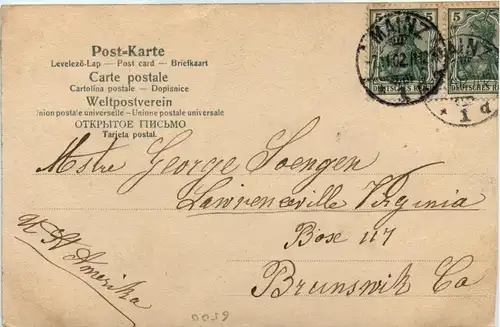 Post-Karte
Levelező-Lap — Post card — Briefkaart
Carte postale
Cartolina postale — Dopisnice
Weltpostverein
Union postale universelle — Unione postale universale
ОТКРЫТОЕ ПИСЬМО
Tarjeta postal.
5
5
DEUTSCHES REICH
MAINZ
02
MAINZ
* 1 d
Mstre George Soengen
Lawrenceville Virginia
Boxe 117
Brunswik Co
U St Amerika
0059